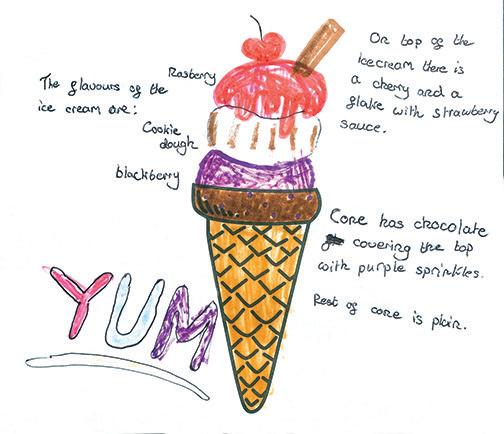 The flavours of the
ice cream are:
Rasberry
Cookie
dough
blackberry
On top of the
icecream there is
a cherry and a
flake with strawberry
sauce.
Cone has chocolate
covering the top
with purple sprinkles.
Rest of cone is plain.
YUM